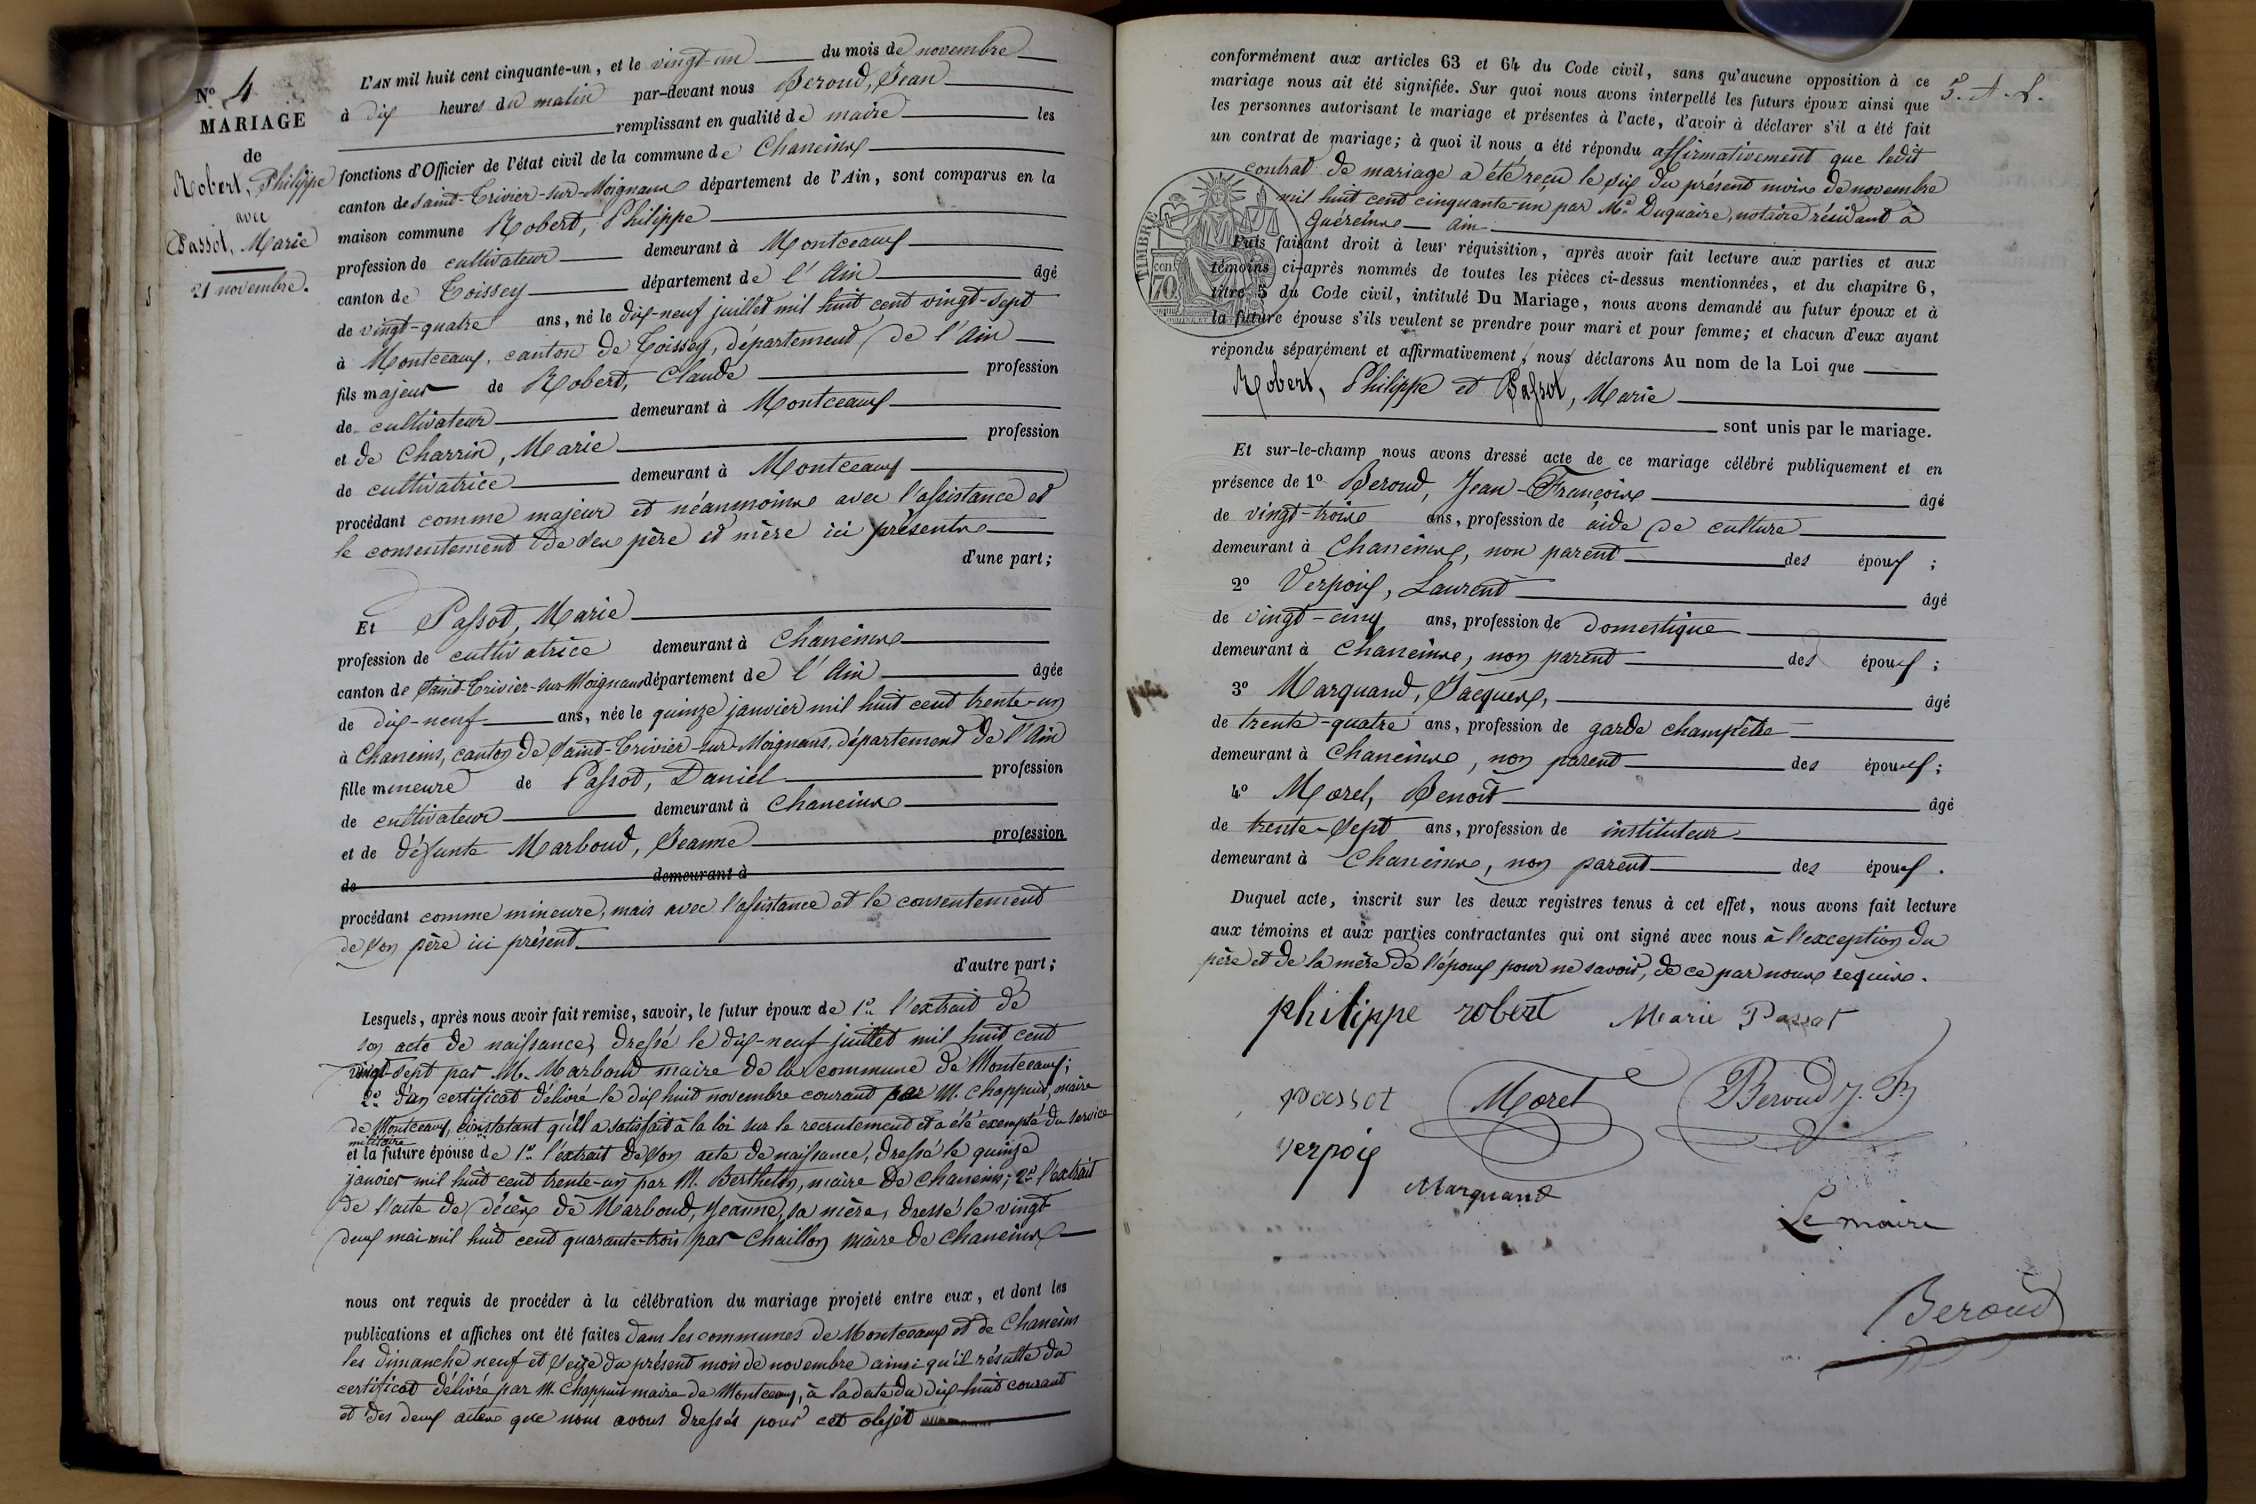 N° 4
MARIAGE
de
Robert, Philippe
avec
Passot, Marie
21 novembre.
L'AN mil huit cent cinquante-un, et le vingt-un du mois de novembre
à dix heures du matin par-devant nous Beroud, Jean
remplissant en qualité de maire les
fonctions d'Officier de l'état civil de la commune de Chaneins
canton de Saint-Trivier-sur-Moignans département de l'Ain, sont comparus en la
maison commune Robert, Philippe
profession de cultivateur demeurant à Montceaux
canton de Toissey département de l'Ain âgé
de vingt-quatre ans, né le dix-neuf juillet mil huit cent vingt-sept
à Montceaux, canton de Toissey, département de l'Ain
fils majeur de Robert, Claude profession
de cultivateur demeurant à Montceaux
et de Charrin, Marie profession
de cultivatrice demeurant à Montceaux
procédant comme majeur et néanmoins avec l'assistance et
le consentement de ses père et mère ici présents
d'une part;
Et Passot, Marie
profession de cultivatrice demeurant à Chaneins
canton de Saint-Trivier-sur-Moignans département de l'Ain âgée
de dix-neuf ans, née le quinze janvier mil huit cent trente-un
à Chaneins, canton de Saint-Trivier-sur-Moignans, département de l'Ain
fille mineure de Passot, Daniel profession
de cultivateur demeurant à Chaneins
et de défunte Marboud, Jeanne profession
de demeurant à
procédant comme mineure, mais avec l'assistance et le consentement
de son père ici présent
d'autre part;
Lesquels, après nous avoir fait remise, savoir, le futur époux de 1° l'extrait de
son acte de naissance, dressé le dix-neuf juillet mil huit cent
vingt-sept par M. Marboud maire de la commune de Montceaux;
2° d'un certificat délivré le dix huit novembre courant par M. Chappuis, maire
de Montceaux, constatant qu'il a satisfait à la loi sur le recrutement et a été exempté du service
militaire
et la future épouse de 1° l'extrait de son acte de naissance, dressé le quinze
janvier mil huit cent trente-un par M. Berthelon, maire de Chaneins; 2° l'extrait
de l'acte de décès de Marboud, Jeanne, sa mère, dressé le vingt
deux mai mil huit cent quarante-trois par Chaillon maire de Chaneins
nous ont requis de procéder à la célébration du mariage projeté entre eux, et dont les
publications et affiches ont été faites dans les communes de Montceaux et de Chaneins
les dimanche neuf et seize du présent mois de novembre ainsi qu'il résulte du
certificat délivré par M. Chappuis maire de Montceaux, à la date du dix-huit courant
et des deux actes que nous avons dressés pour cet objet
conformément aux articles 63 et 64 du Code civil, sans qu'aucune opposition à ce
mariage nous ait été signifiée. Sur quoi nous avons interpellé les futurs époux ainsi que
les personnes autorisant le mariage et présentes à l'acte, d'avoir à déclarer s'il a été fait
un contrat de mariage; à quoi il nous a été répondu affirmativement que ledit
contrat de mariage a été reçu le six du présent mois de novembre
mil huit cent cinquante-un par Me Duquaire, notaire résidant à
Guéreins Ain
TIMBRE
70
Puis faisant droit à leur réquisition, après avoir fait lecture aux parties et aux
témoins ci-après nommés de toutes les pièces ci-dessus mentionnées, et du chapitre 6,
titre 5 du Code civil, intitulé Du Mariage, nous avons demandé au futur époux et à
la future épouse s'ils veulent se prendre pour mari et pour femme; et chacun d'eux ayant
répondu séparément et affirmativement, nous déclarons Au nom de la Loi que
Robert, Philippe et Passot, Marie
sont unis par le mariage.
Et sur-le-champ nous avons dressé acte de ce mariage célébré publiquement et en
présence de 1° Beroud, Jean-François âgé
de vingt-trois ans, profession de aide de culture
demeurant à Chaneins, non parent des époux;
2° Verpoix, Laurent âgé
de vingt-cinq ans, profession de Domestique
demeurant à Chaneins, non parent des époux;
3° Marquand, Jacques, âgé
de trente-quatre ans, profession de garde champêtre
demeurant à Chaneins, non parent des époux;
4° Morel, Benoît âgé
de trente-sept ans, profession de instituteur
demeurant à Chaneins, non parent des époux.
Duquel acte, inscrit sur les deux registres tenus à cet effet, nous avons fait lecture
aux témoins et aux parties contractantes qui ont signé avec nous à l'exception du
père et de la mère de l'époux pour ne savoir, de ce par nous requis.
philippe robert Marie Passot
passot Morel Beroud J. F.
verpoix
Marquand
Le maire
Beroud